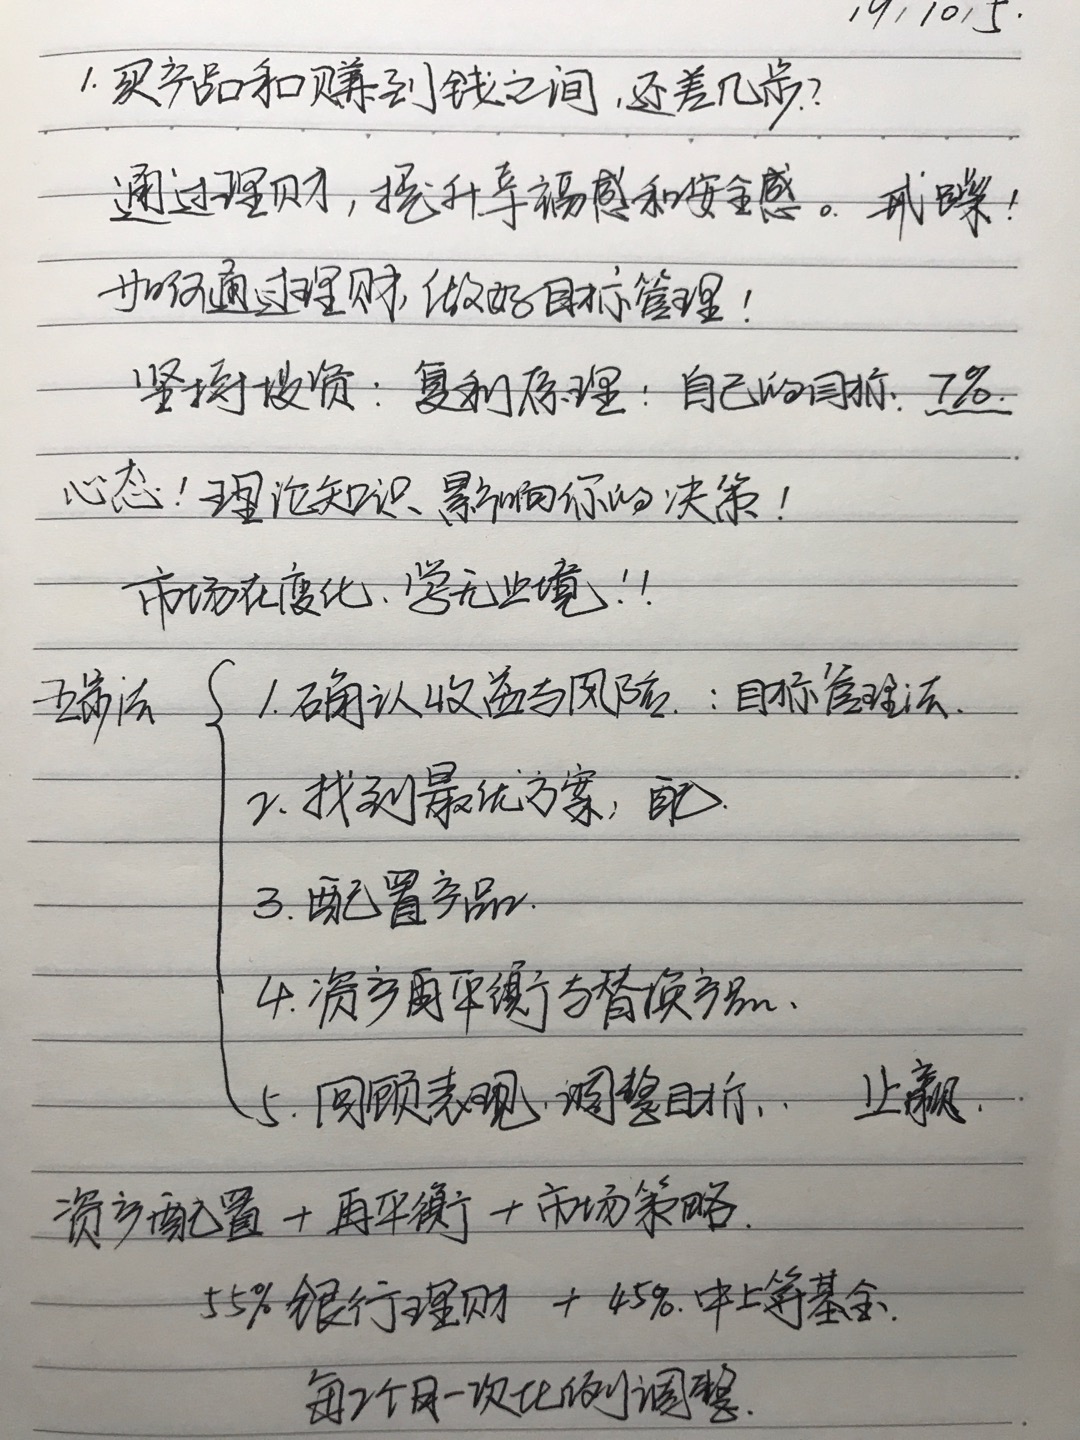 19/10/5.
1.买产品和赚到钱之间,还差几步?
通过理财,提升幸福感和安全感。戒躁!
如何通过理财,做好目标管理!
坚持投资:复利原理:自己的目标. 7%.
心态!理论知识、影响你的决策!
市场在变化、学无止境!!
五步法
1.确认收益与风险.:目标管理法.
2.找到最优方案,配.
3.配置产品.
4.资产再平衡与替换产品、
5.回顾表现,调整目标.. 止赢.
资产配置+再平衡+市场策略.
55%银行理财 + 45%.中上等基金.
每2个月一次比例调整.